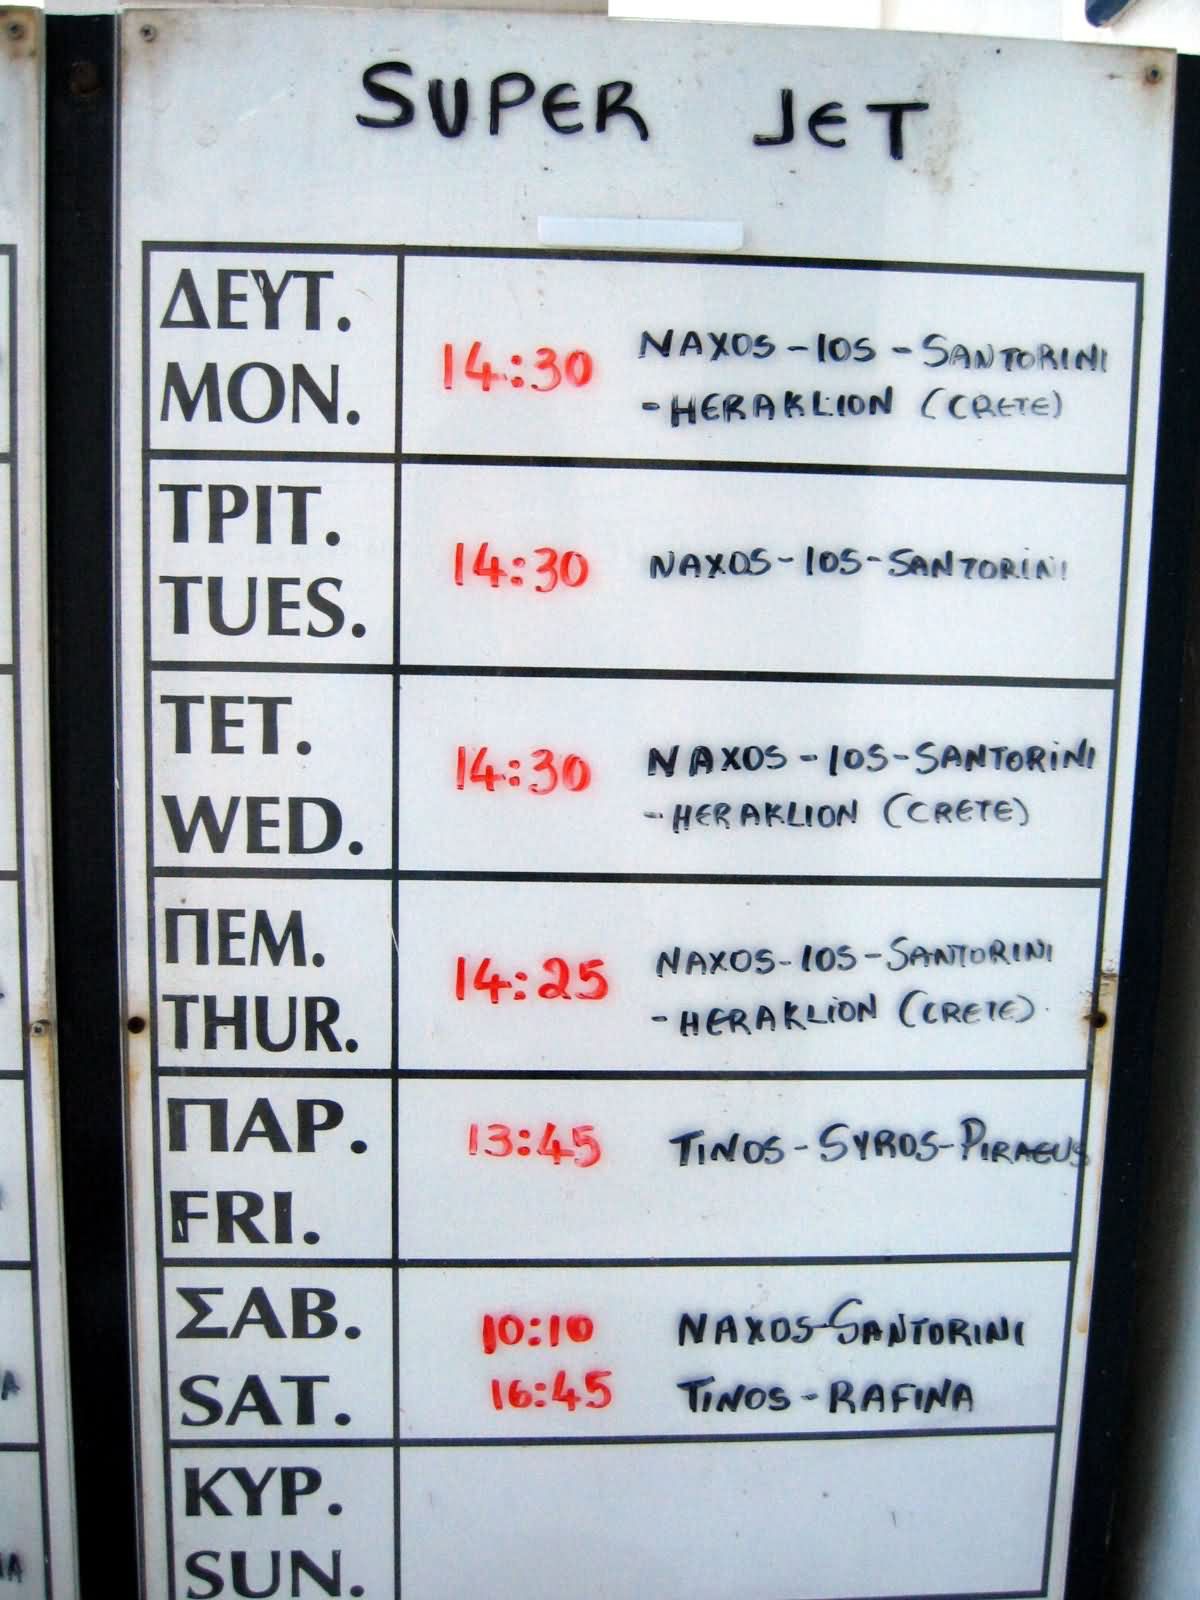 SUPER JET
ΔΕΥΤ.
MON.
14:30
NAXOS-IOS-SANTORINI
-HERAKLION (CRETE)
ΤΡΙΤ.
TUES.
14:30
NAXOS-IOS-SANTORINI
ΤΕΤ.
WED.
14:30
NAXOS-IOS-SANTORINI
-HERAKLION (CRETE)
ΠΕΜ.
THUR.
14:25
NAXOS-IOS-SANTORINI
-HERAKLION (CRETE)
ΠΑΡ.
FRI.
13:45
TINOS-SYROS-PIRAEUS
ΣΑΒ.
SAT.
10:10 NAXOS-SANTORINI
16:45 TINOS-RAFINA
ΚΥΡ.
SUN.